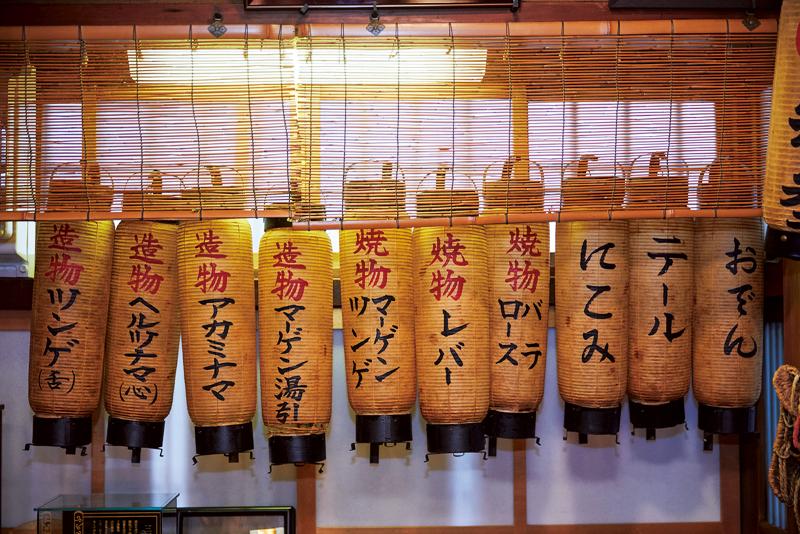 造物
ツンゲ
(舌)
造物
ヘルツナマ
(心)
造物
アカミナマ
造物
マーゲン湯引
焼物
マーゲン
ツンゲ
焼物
レバー
焼物
バラ
ロース
にこみ
テール
おでん